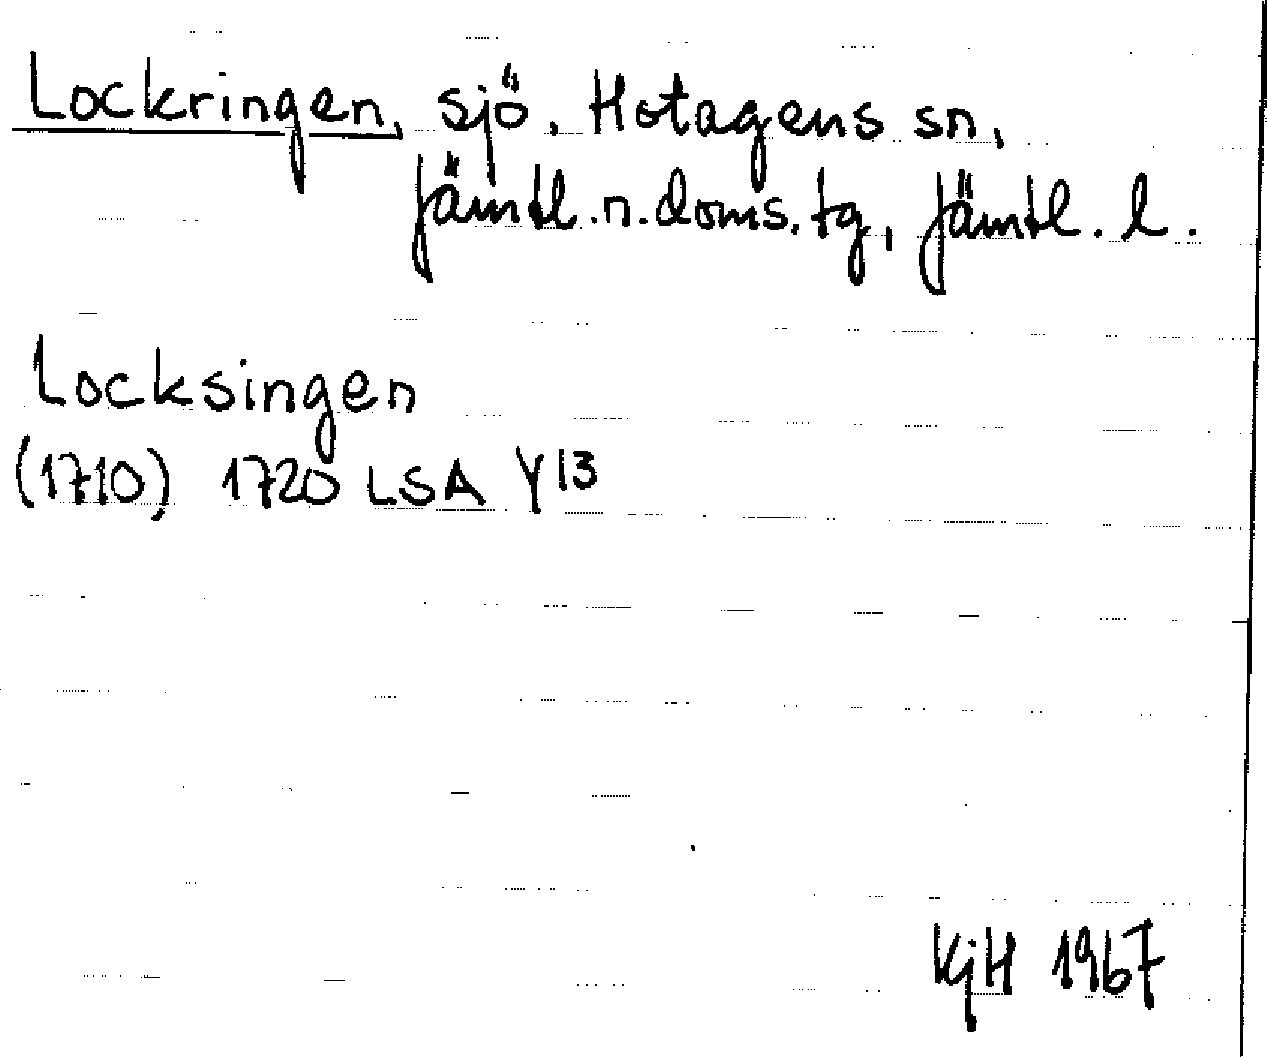 Lockringen, sjö. Hotagens sn,
Jämtl. n. doms. tg, Jämtl. l.
Locksingen
(1710) 1720 LSA Y13
KjH 1967